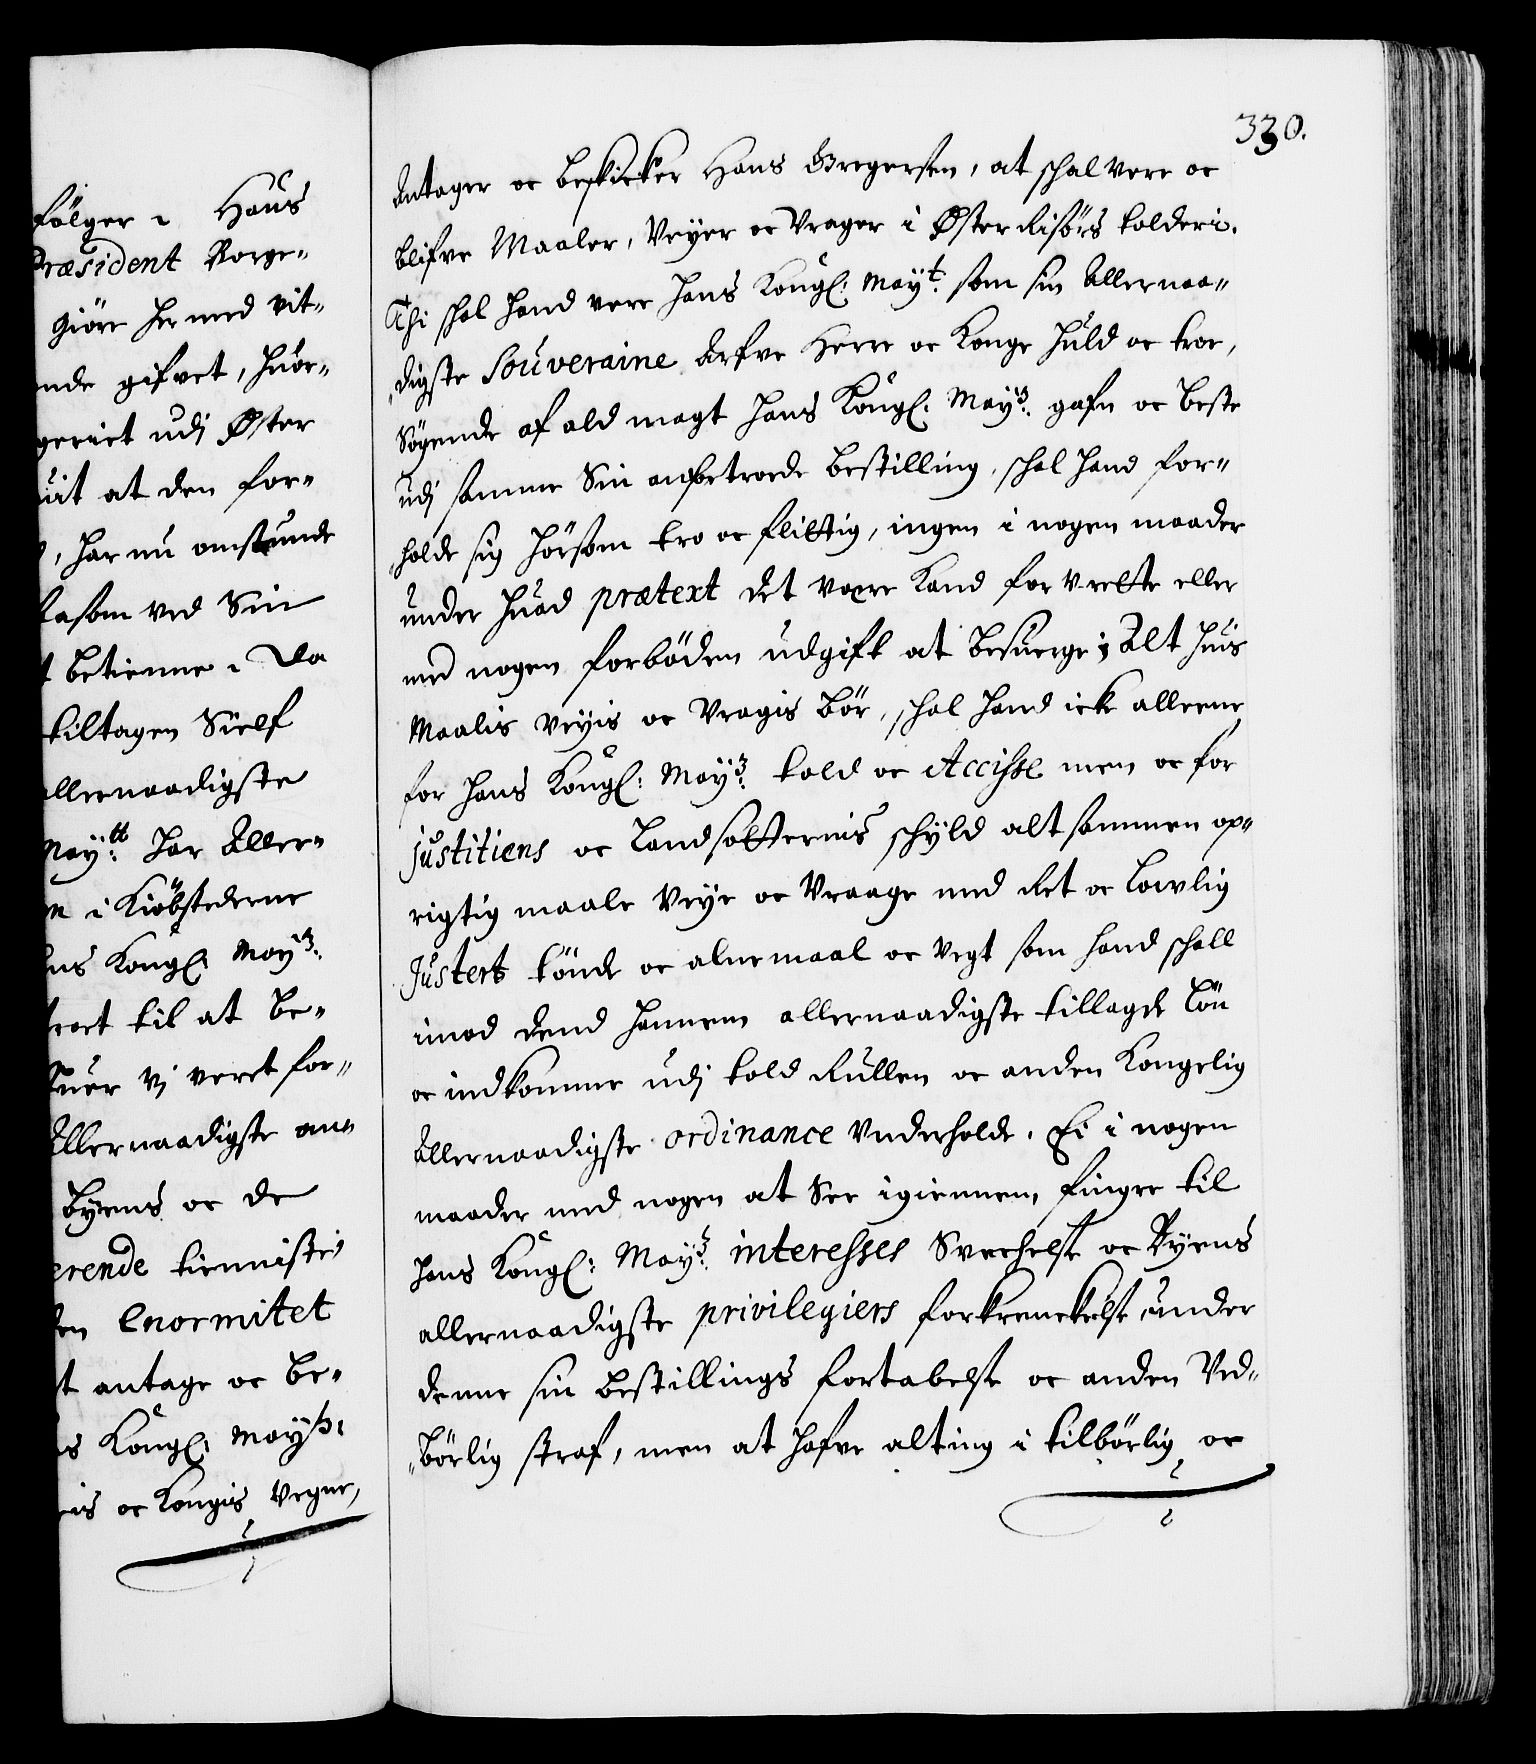 fölger i Hans
Præsident Borge-
giöre hermed vit-
nde gifvet, huor-
geriet udj Øster
uit at den for-
, har nu omstunde
lasom ved Sin
t betienne. Da
tiltagen Sielf
allernaadigste
Mayᵗᵗ: har Aller-
n i Kiöbstederne
ns Kongl: Mayˢ:
roet til at be-
huer Vj veret for-
Allernaadigste an-
byens oc de
erende tienniste
en Enormitet
t antage oc be-
s Kongl: Mayˢ:
is oc Kongis Vegne,
330.
Antager oc beskicker Hans Gregersen, at schal vere oc
blifve Maaler, Veyer oc Vrager i Øster Risörs tolderi.
Thi schal hand vere hans Kongl: Mayᵗ: som sin Allernaa-
„digste Souveraine Arfve Herre oc Konge huld oc troe,
Sögende af ald magt hans Kongl: Mayˢ: gafn oc beste
udj samme Sin anbetroede bestilling, schal hand for-
„holde sig hörsom tro oc flittig, ingen i nogen maader
under huad prætext det være Kand for Vrette eller
med nogen forböden udgift at besuerge; Alt huis
Maalis Veyis oc Vragis bör, schal hand icke alleene
for hans Kongl: Mayˢ: told oc Accisse men oc for
justitiens oc Landsætternis schyld altsammen op-
rigtig maale Veye oc Vraage med Ret oc lowlig
Justert tönde oc alnemaal oc Vegt som hand schall
imod dend hannem allernaadigste tillagde lön
oc indkomme udj told Rullen oc anden Kongelig
Allernaadigste ordinance Vnderholde. Ei i nogen
maader med nogen at See igiennem fingre til
hans Kongl: Mayˢ: interesses Svechelse oc Byens
allernaadigste privilegiers forkrenckelse, under
denne sin bestillings fortabelse oc anden Ved-
„börlig straf, men at hafve alting i tilbörlig oc